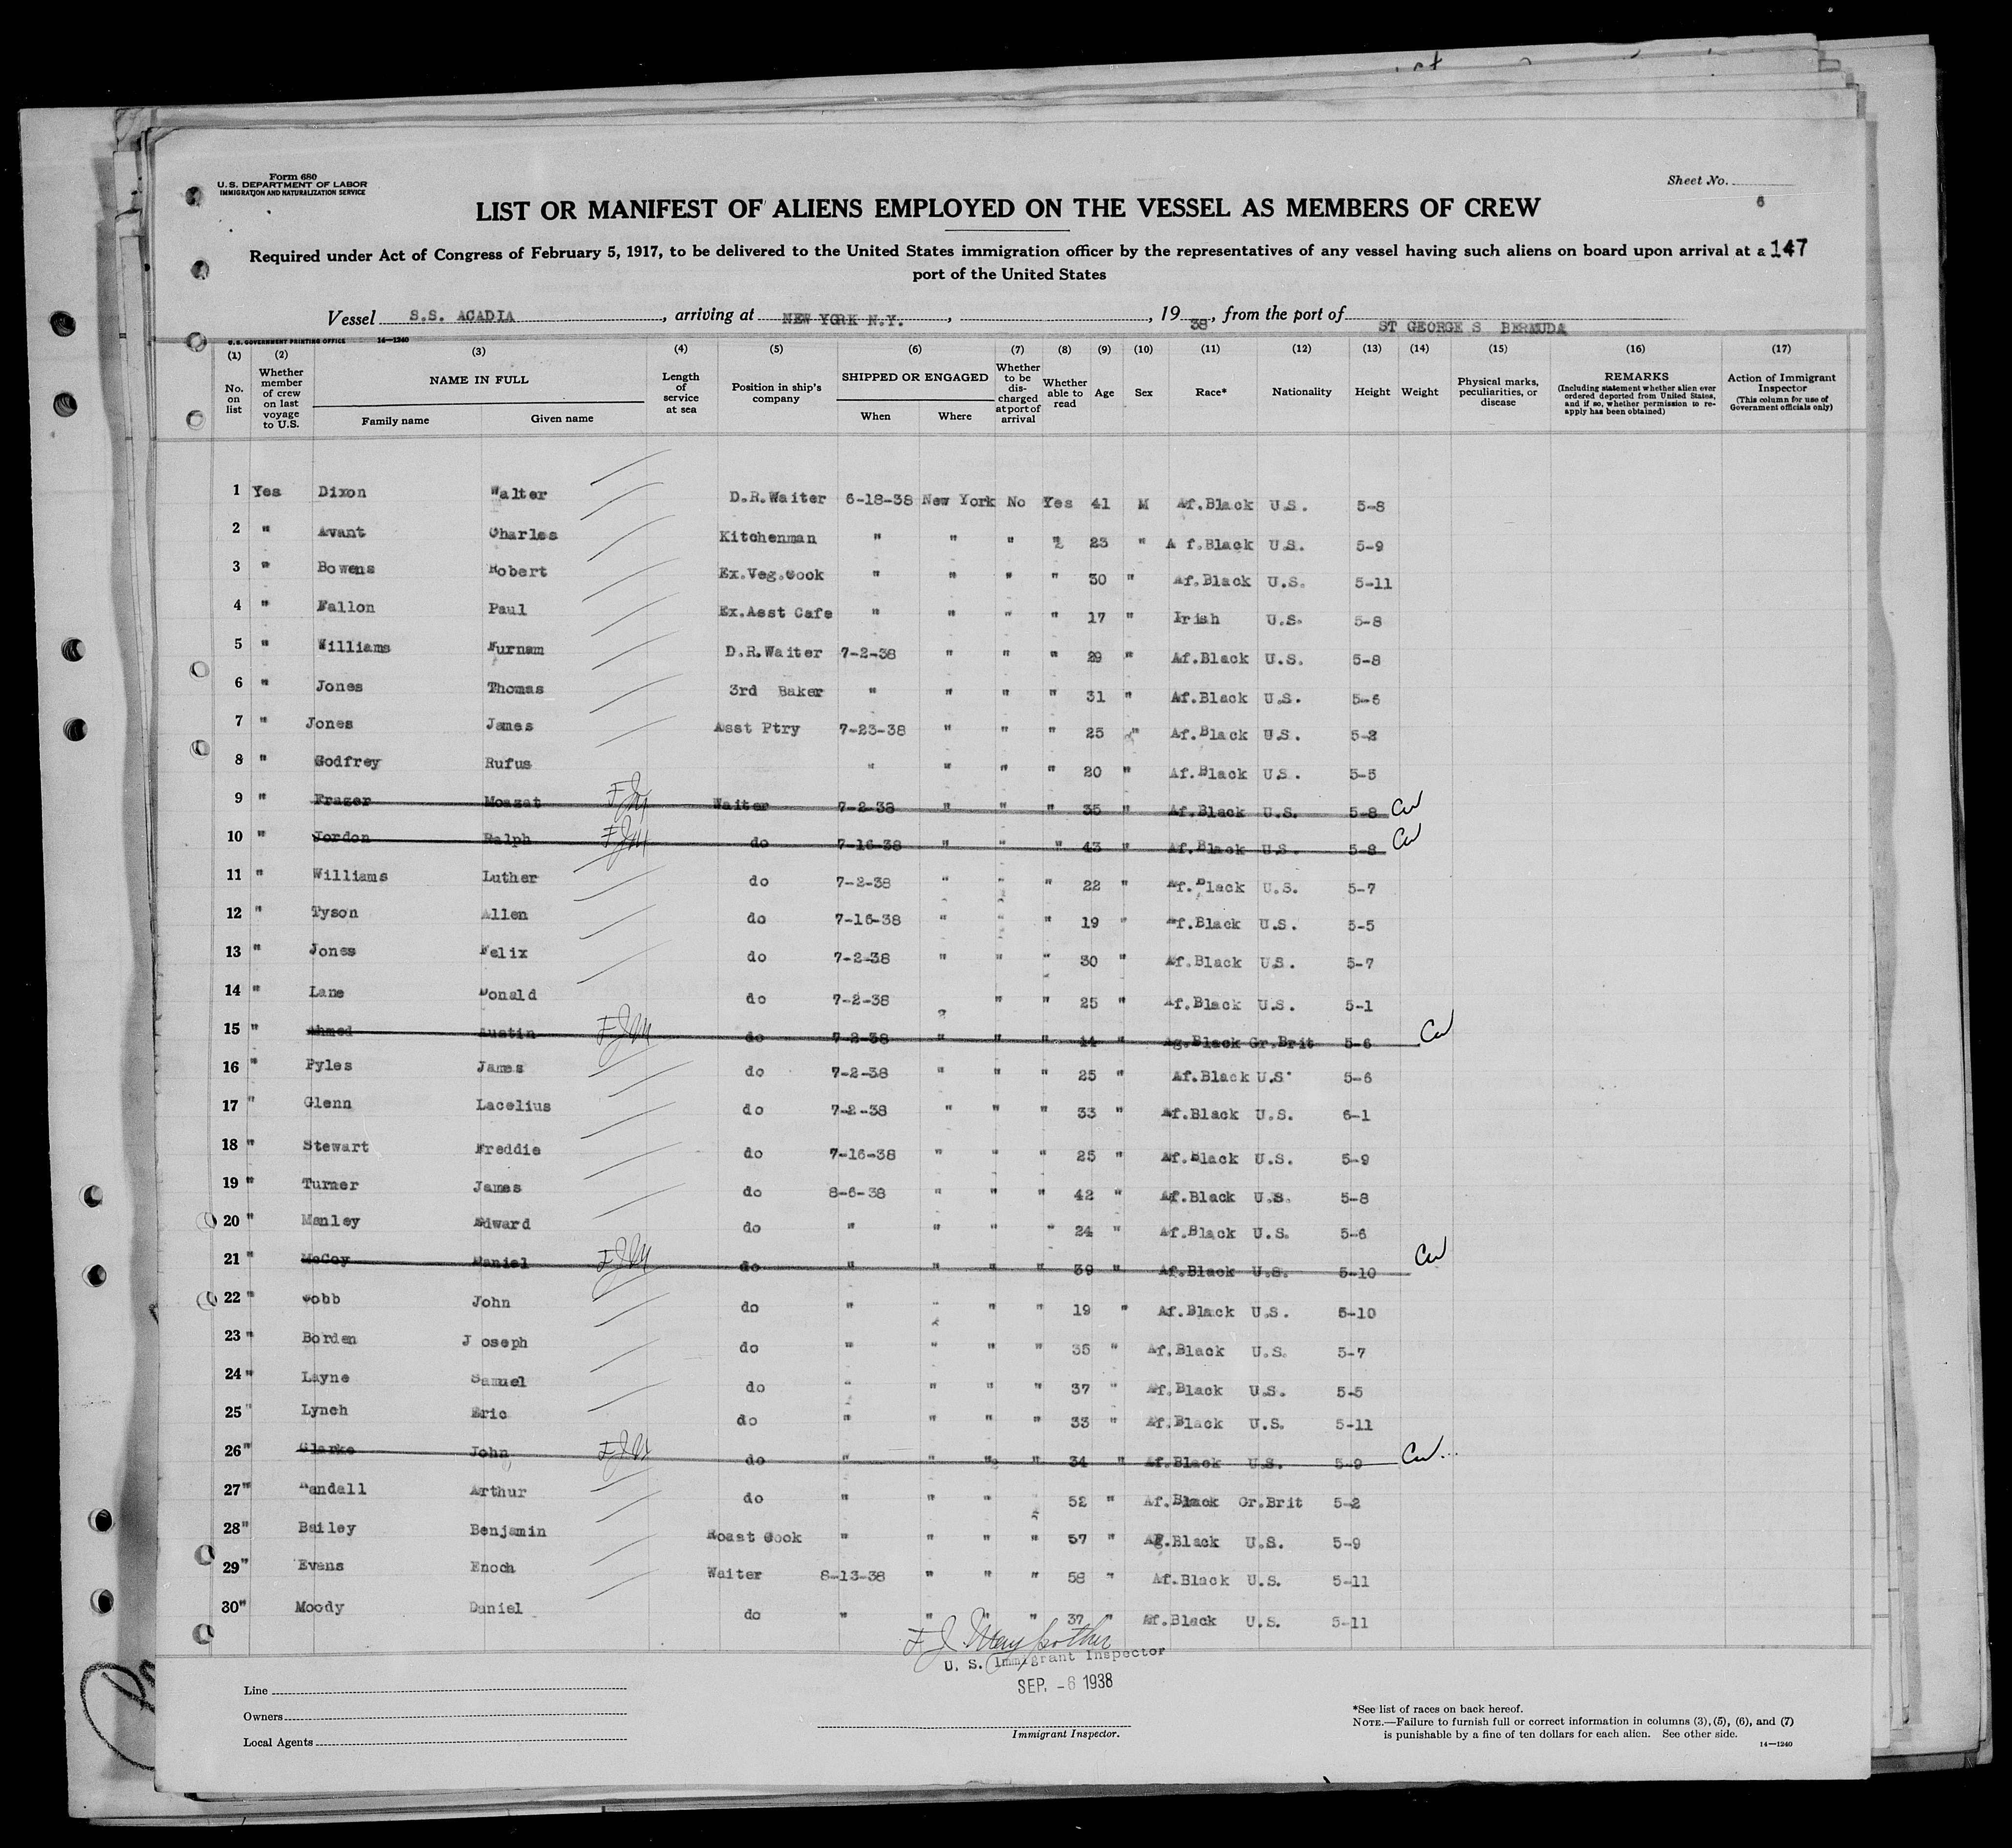 Form 680
U.S. DEPARTMENT OF LABOR
IMMIGRATION AND NATURALIZATION SERVICE
Sheet No.
6
LIST OR MANIFEST OF ALIENS EMPLOYED ON THE VESSEL AS MEMBERS OF CREW
Required under Act of Congress of February 5, 1917, to be delivered to the United States immigration officer by the representatives of any vessel having such aliens on board upon arrival at a 147
port of the United States
Vessel S.S. ACADIA, arriving at NEW YORK N.Y., , 1938, from the port of ST GEORGE S BERMUDA
U.S. GOVERNMENT PRINTING OFFICE 14—1240
(1) (2) (3) (4) (5) (6) (7) (8) (9) (10) (11) (12) (13) (14) (15) (16) (17)
No. on list
Whether member of crew on last voyage to U.S.
NAME IN FULL
Family name Given name
Length of service at sea
Position in ship's company
SHIPPED OR ENGAGED
When Where
Whether to be discharged at port of arrival
Whether able to read
Age
Sex
Race*
Nationality
Height
Weight
Physical marks, peculiarities, or disease
REMARKS
(Including statement whether alien ever ordered deported from United States, and if so, whether permission to reapply has been obtained)
Action of Immigrant Inspector
(This column for use of Government officials only)
1 Yes Dixon Walter D.R.Waiter 6-18-38 New York No Yes 41 M Af.Black U.S. 5-8
2 " Avant Charles Kitchenman " " " " 23 " A f.Black U.S. 5-9
3 " Bowens Robert Ex.Veg.Cook " " " " 30 " Af.Black U.S. 5-11
4 " Fallon Paul Ex.Asst Cafe " " " " 17 " Irish U.S. 5-8
5 " Williams Furnam D.R.Waiter 7-2-38 " " " 29 " Af.Black U.S. 5-8
6 " Jones Thomas 3rd Baker " " " " 31 " Af.Black U.S. 5-6
7 " Jones James Asst Ptry 7-23-38 " " " 25 " Af.Black U.S. 5-2
8 " Godfrey Rufus " " " " 20 " Af.Black U.S. 5-5
9 " Frazer Moazat FJM Waiter 7-2-38 " " " 35 " Af.Black U.S. 5-8 Cw
10 " Jordon Ralph FJM do 7-16-38 " " " 43 " Af.Black U.S. 5-8 Cw
11 " Williams Luther do 7-2-38 " " " 22 " Af.Black U.S. 5-7
12 " Tyson Allen do 7-16-38 " " " 19 " Af.Black U.S. 5-5
13 " Jones Felix do 7-2-38 " " " 30 " Af.Black U.S. 5-7
14 " Lane Donald do 7-2-38 " " 25 " Af.Black U.S. 5-1
15 " Ahmed Austin FJM do 7-2-38 " " " 44 " Ag.Black Gr.Brit 5-6 Cw
16 " Pyles James do 7-2-38 " " " 25 " Af.Black U.S. 5-6
17 " Glenn Lacelius do 7-2-38 " " " 33 " Af.Black U.S. 6-1
18 " Stewart Freddie do 7-16-38 " " " 25 " Af.Black U.S. 5-9
19 " Turner James do 8-6-38 " " " 42 " Af.Black U.S. 5-8
20 " Manley Edward do " " " " 24 " Af.Black U.S. 5-6
21 " McCoy Daniel FJM do " " " " 39 " Af.Black U.S. 5-10 Cw
22 " Cobb John do " " " " 19 " Af.Black U.S. 5-10
23 " Borden J oseph do " " " " 35 " Af.Black U.S. 5-7
24 " Layne Samuel do " " " " 37 " Af.Black U.S. 5-5
25 " Lynch Eric do " " " " 33 " Af.Black U.S. 5-11
26 " Clarke John FJM do " " " " 34 " Af.Black U.S. 5-9 Cw
27 " Randall Arthur do " " " " 52 " Af.Black Gr.Brit 5-2
28 " Bailey Benjamin Roast Cook " " " " 57 " Af.Black U.S. 5-9
29 " Evans Enoch Waiter 8-13-38 " " " 58 " Af.Black U.S. 5-11
30 " Moody Daniel do " " " " 37 " Af.Black U.S. 5-11
F J Maypother
U. S. Immigrant Inspector
SEP. -6 1938
Line
Owners
Local Agents
Immigrant Inspector.
*See list of races on back hereof.
NOTE.—Failure to furnish full or correct information in columns (3), (5), (6), and (7)
is punishable by a fine of ten dollars for each alien. See other side.
14—1240